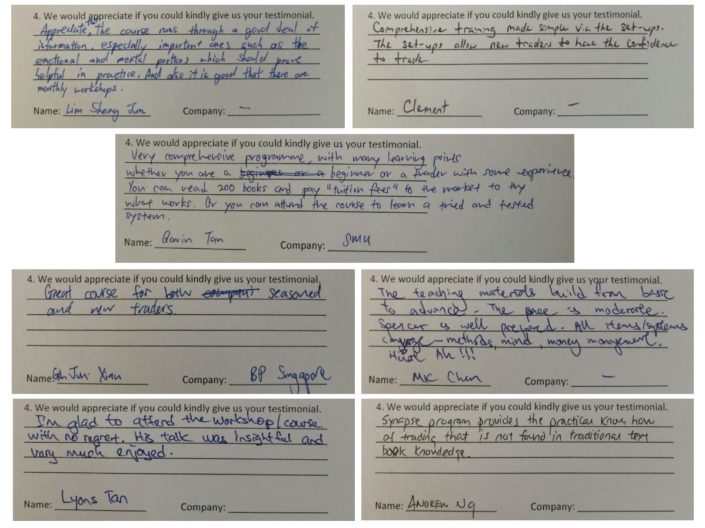 4. We would appreciate if you could kindly give us your testimonial.
Appreciate, the course runs through a good deal of
information, especially important ones such as the
emotional and mental portions which should prove
helpful in practice. And also it is good that there are
monthly workshops.
Name: Lim Sheng Jun Company: —
4. We would appreciate if you could kindly give us your testimonial.
Comprehensive training made simple via the set-ups.
The set-ups allow new traders to have the confidence
to trade.
Name: Clement Company: —
4. We would appreciate if you could kindly give us your testimonial.
Very comprehensive programme, with many learning points
whether you are a beginner or a trader with some experience
You can read 200 books and pay "tuition fees" to the market to try
what works. Or you can attend the course to learn a tried and tested
system.
Name: Gavin Tan Company: SMU
4. We would appreciate if you could kindly give us your testimonial.
Great course for both seasoned
and new traders.
Name: Jun Xian Company: BP Singapore
4. We would appreciate if you could kindly give us your testimonial.
The teaching materials build from basic
to advance. The pace is moderate.
Spencer is well prepared. All items/systems
- methods, mind, money management.
Huat Ah!!!
Name: MK Chen Company: —
4. We would appreciate if you could kindly give us your testimonial.
I'm glad to attend the workshop/course
with no regret. His talk was insightful and
very much enjoyed.
Name: Lyons Tan Company:
4. We would appreciate if you could kindly give us your testimonial.
Synapse program provides the practical know how
of trading that is not found in traditional text
book knowledge.
Name: Andrew Ng Company: